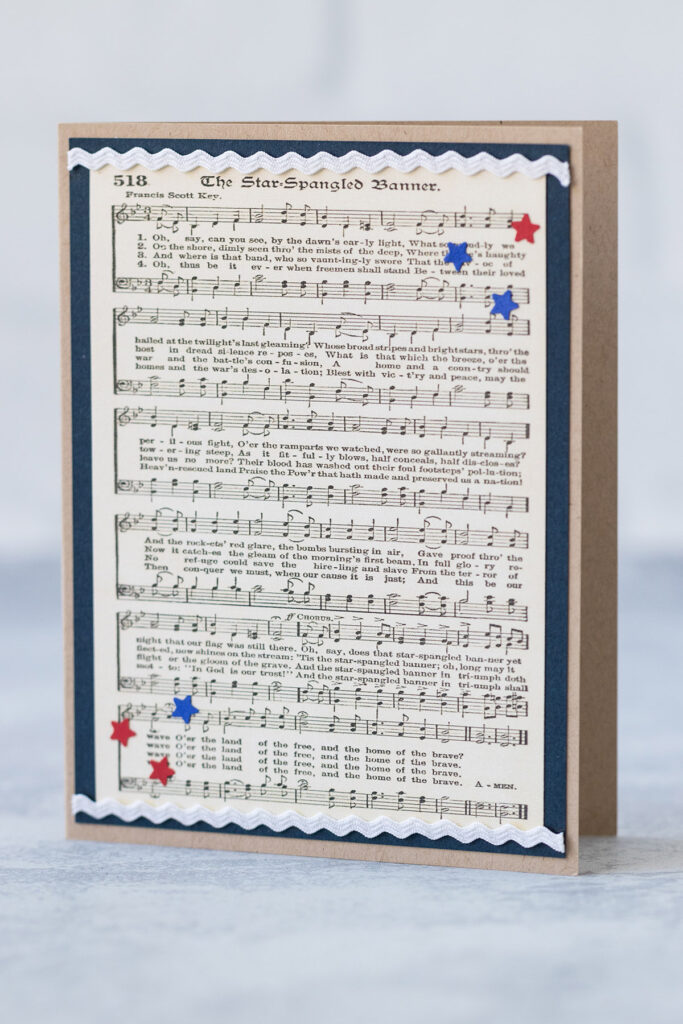 518
The Star-Spangled Banner.
Francis Scott Key.
1. Oh, say, can you see, by the dawn's ear-ly light, What so ud-ly we
2. On the shore, dimly seen thro' the mists of the deep, Where th 's haughty
3. And where is that band, who so vaunt-ing-ly swore That the - oc of
4. Oh, thus be it ev-er when freemen shall stand Be-tween their loved
hailed at the twilight's last gleaming? Whose broad stripes and bright stars, thro' the
host in dread si-lence re-pos-es, What is that which the breeze, o'er the
war and the bat-tle's con-fu-sion, A home and a coun-try should
homes and the war's des-o-la-tion; Blest with vic-t'ry and peace, may the
per-il-ous fight, O'er the ramparts we watched, were so gallantly streaming?
tow-er-ing steep, As it fit-ful-ly blows, half conceals, half dis-clos-es?
leave us no more? Their blood has washed out their foul footsteps' pol-lu-tion;
Heav'n-rescued land Praise the Pow'r that hath made and preserved us a na-tion!
And the rock-ets' red glare, the bombs bursting in air, Gave proof thro' the
Now it catch-es the gleam of the morning's first beam, In full glo-ry re-
No ref-uge could save the hire-ling and slave From the ter-ror of
Then con-quer we must, when our cause it is just; And this be our
ff CHORUS.
night that our flag was still there. Oh, say, does that star-spangled ban-ner yet
flect-ed, now shines on the stream: 'Tis the star-spangled banner; oh, long may it
flight or the gloom of the grave. And the star-spangled banner in tri-umph doth
mot-to: "In God is our trust!" And the star-spangled banner in tri-umph shall
wave O'er the land of the free, and the home of the brave?
wave O'er the land of the free, and the home of the brave.
wave O'er the land of the free, and the home of the brave.
O'er the land of the free, and the home of the brave. A-MEN.